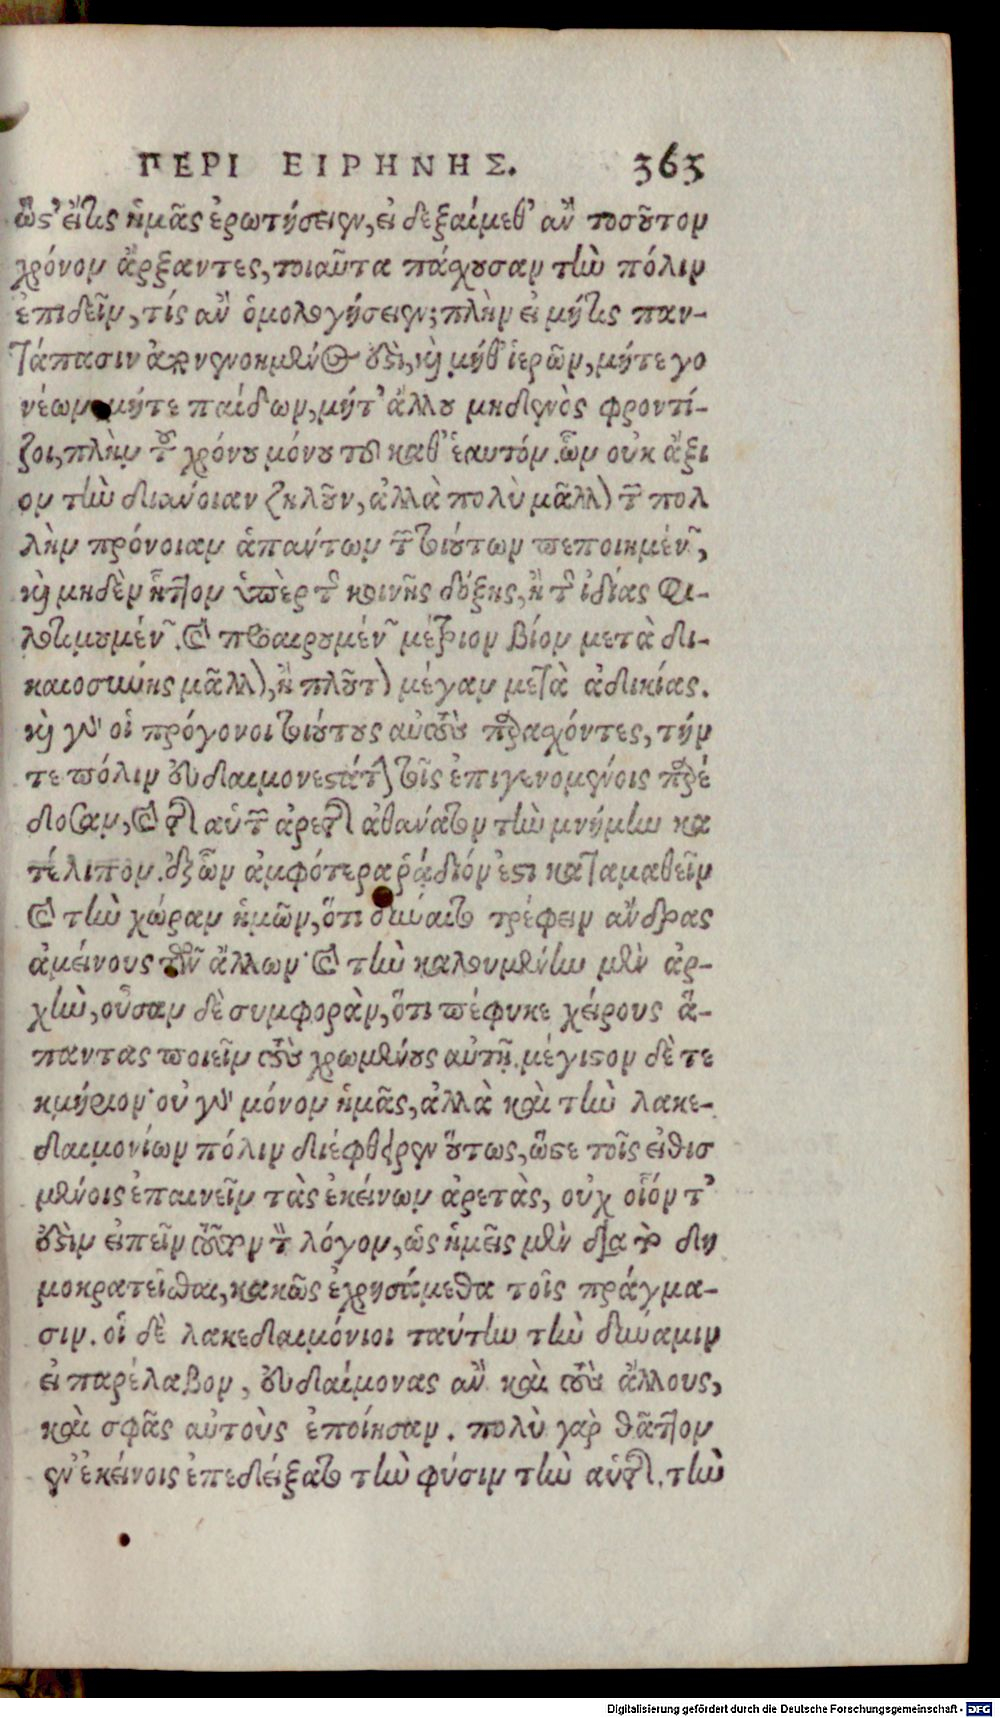 ΠΕΡΙ ΕΙΡΗΝΗΣ. 363
ὥστ' εἴτις ἡμᾶς ἐρωτήσειεν, εἰ δεξαίμεθ' ἂν τοσοῦτον
χρόνον ἄρξαντες, τοιαῦτα πάσχουσαν τὴν πόλιν
ἐπιδεῖν, τίς ἂν ὁμολογήσειεν; πλὴν εἰ μήτις παν-
τάπασιν ἀπονενοημένος ἐστὶ, καὶ μήθ' ἱερῶν, μήτε γο
νέων μήτε παίδων, μήτ' ἄλλου μηδενὸς φροντί-
ζοι, πλὴν τοῦ χρόνου μόνου τοῦ καθ' ἑαυτόν. ὧν οὐκ ἄξι
ον τὴν διάνοιαν ζηλοῦν, ἀλλὰ πολὺ μᾶλλον τῶν πολ
λὴν πρόνοιαν ἁπάντων τῶν τοιούτων πεποιημένων,
καὶ μηδὲν ἧττον ὑπὲρ τῆς κοινῆς δόξης, ἢ τῆς ἰδίας φι-
λοτιμουμένων. καὶ προαιρουμένων μέτριον βίον μετὰ δι-
καιοσύνης μᾶλλον, ἢ πλοῦτον μέγαν μετὰ ἀδικίας.
καὶ γὰρ οἱ πρόγονοι τοιούτους αὑτοὺς παρασχόντες, τήν
τε πόλιν εὐδαιμονεστάτην τοῖς ἐπιγενομένοις παρέ
δοσαν, καὶ τῆς αὑτῶν ἀρετῆς ἀθάνατον τὴν μνήμην κα
τέλιπον. ἐξ ὧν ἀμφότερα ῥᾴδιόν ἐστι καταμαθεῖν
καὶ τὴν χώραν ἡμῶν, ὅτι δύναται τρέφειν ἄνδρας
ἀμείνους τῶν ἄλλων· καὶ τὴν καλουμένην μὲν ἀρ-
χὴν, οὖσαν δὲ συμφορὰν, ὅτι πέφυκε χείρους ἅ-
παντας ποιεῖν τοὺς χρωμένους αὐτῇ. μέγιστον δὲ τε
κμήριον· οὐ γὰρ μόνον ἡμᾶς, ἀλλὰ καὶ τὴν λακε-
δαιμονίων πόλιν διέφθειρεν οὕτως, ὥστε τοῖς εἰθισ
μένοις ἐπαινεῖν τὰς ἐκείνων ἀρετὰς, οὐχ οἷόν τ'
ἐστὶν εἰπεῖν τοῦτον τὸν λόγον, ὡς ἡμεῖς μὲν διὰ τὸ δη
μοκρατεῖσθαι, κακῶς ἐχρησάμεθα τοῖς πράγμα-
σιν. οἱ δὲ λακεδαιμόνιοι ταύτην τὴν δύναμιν
εἰ παρέλαβον, εὐδαίμονας ἂν καὶ τοὺς ἄλλους,
καὶ σφᾶς αὐτοὺς ἐποίησαν. πολὺ γὰρ θᾶττον
ἐν ἐκείνοις ἐπεδείξατο τὴν φύσιν τὴν αὑτῆς. τὴν
Digitalisierung gefördert durch die Deutsche Forschungsgemeinschaft - DFG